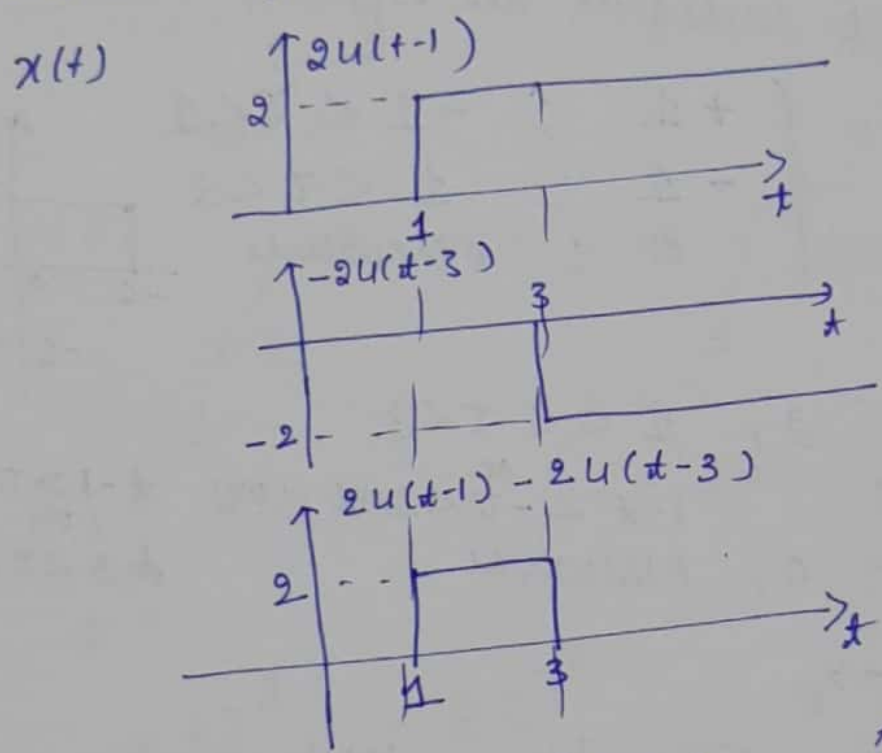 x(t)
2u(t-1)
2
t
1
-2u(t-3)
3
t
-2
2u(t-1) - 2u(t-3)
2
t
1
3